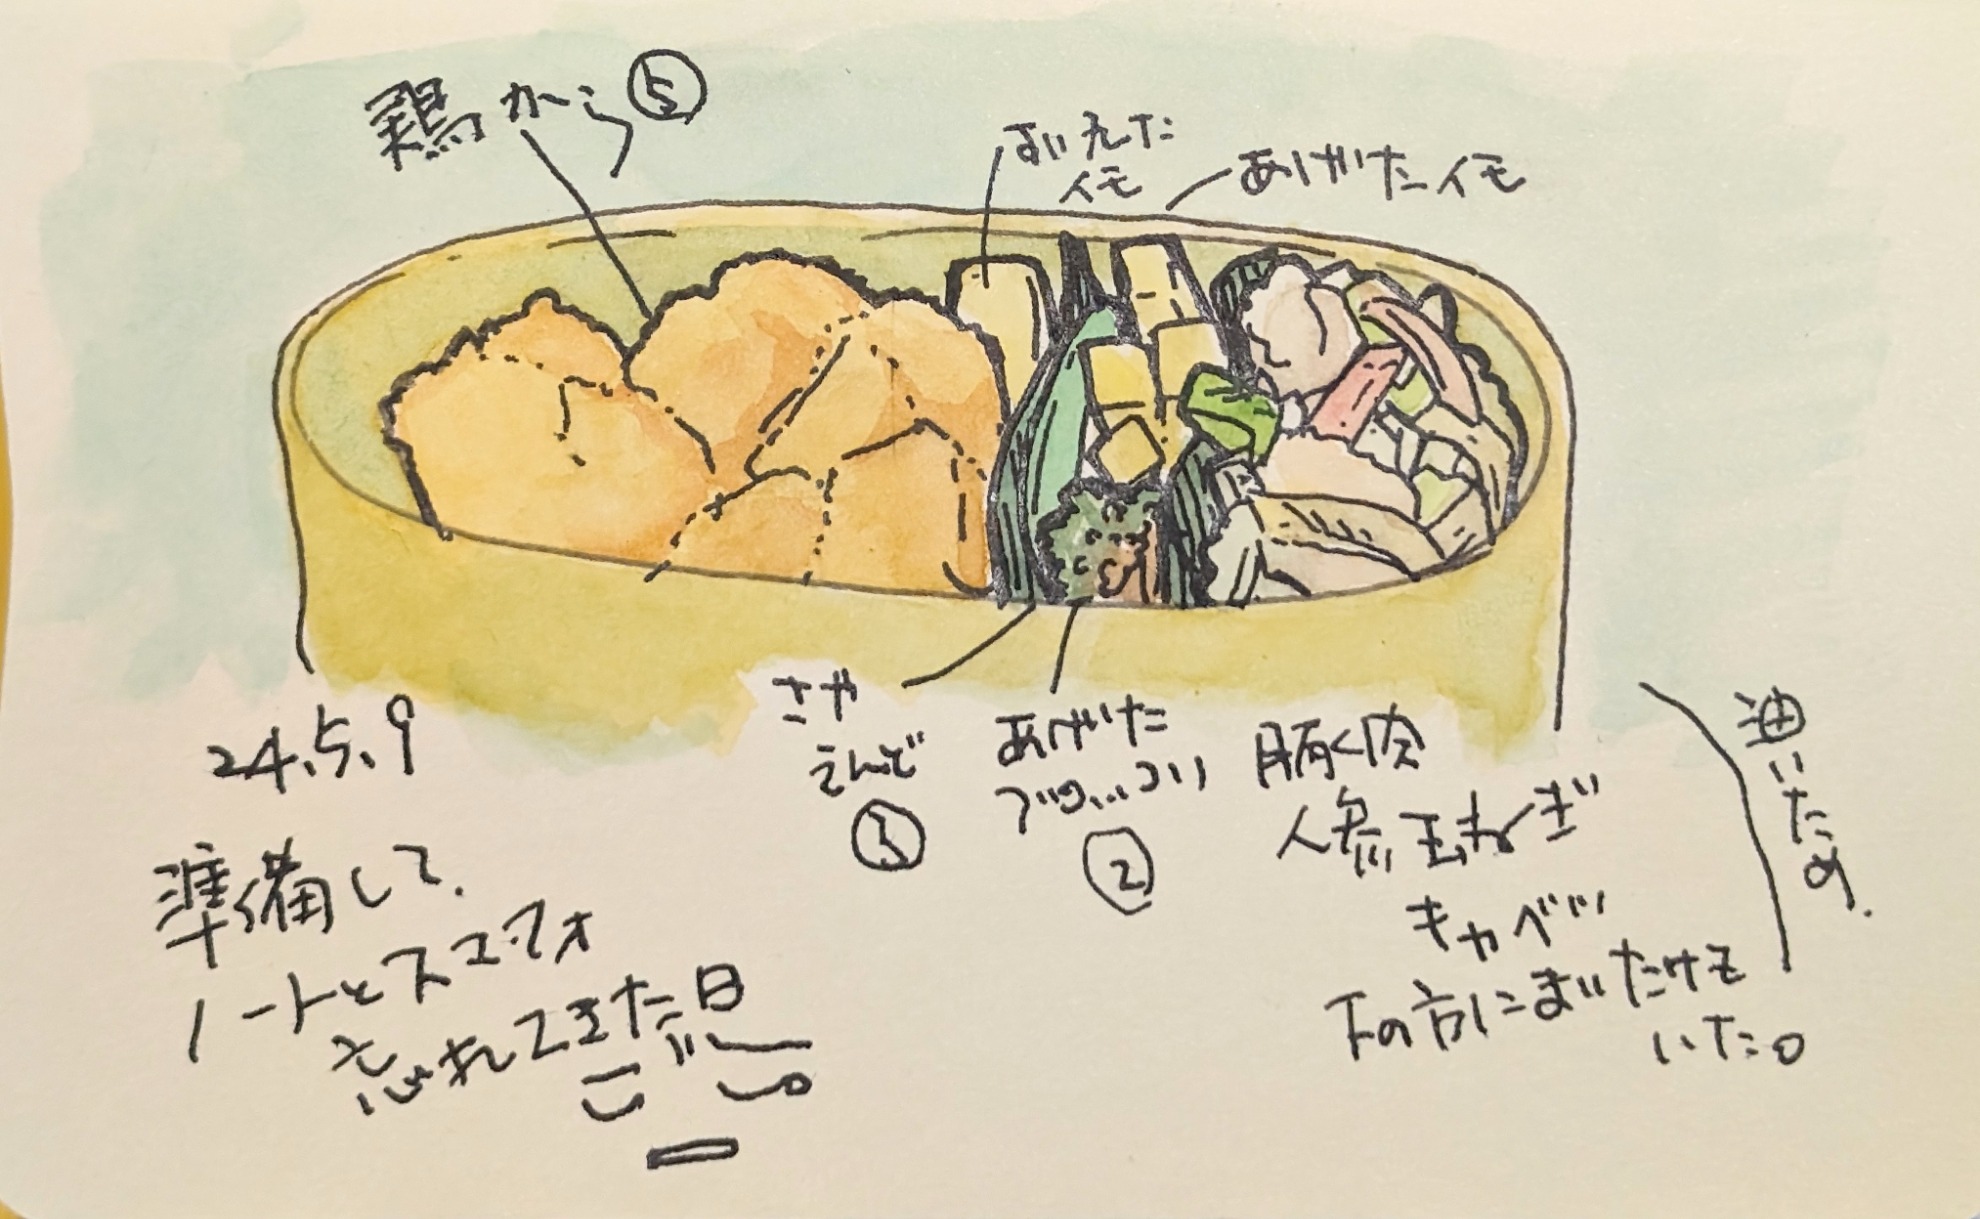 鶏から⑤
すいえたイモ
あげたイモ
24.5.9
さや
えんど
③
あげた
ブロッコリ
②
豚く肉
人参玉ねぎ
キャベツ
下の方にまいたけも
いた。
油いため.
準備して.
ノートとスマフォ
忘れてきた日